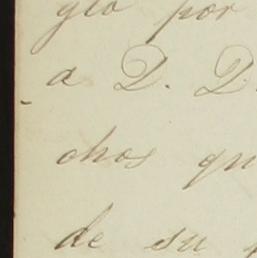 gio por
a D. D.
chos qu
de su